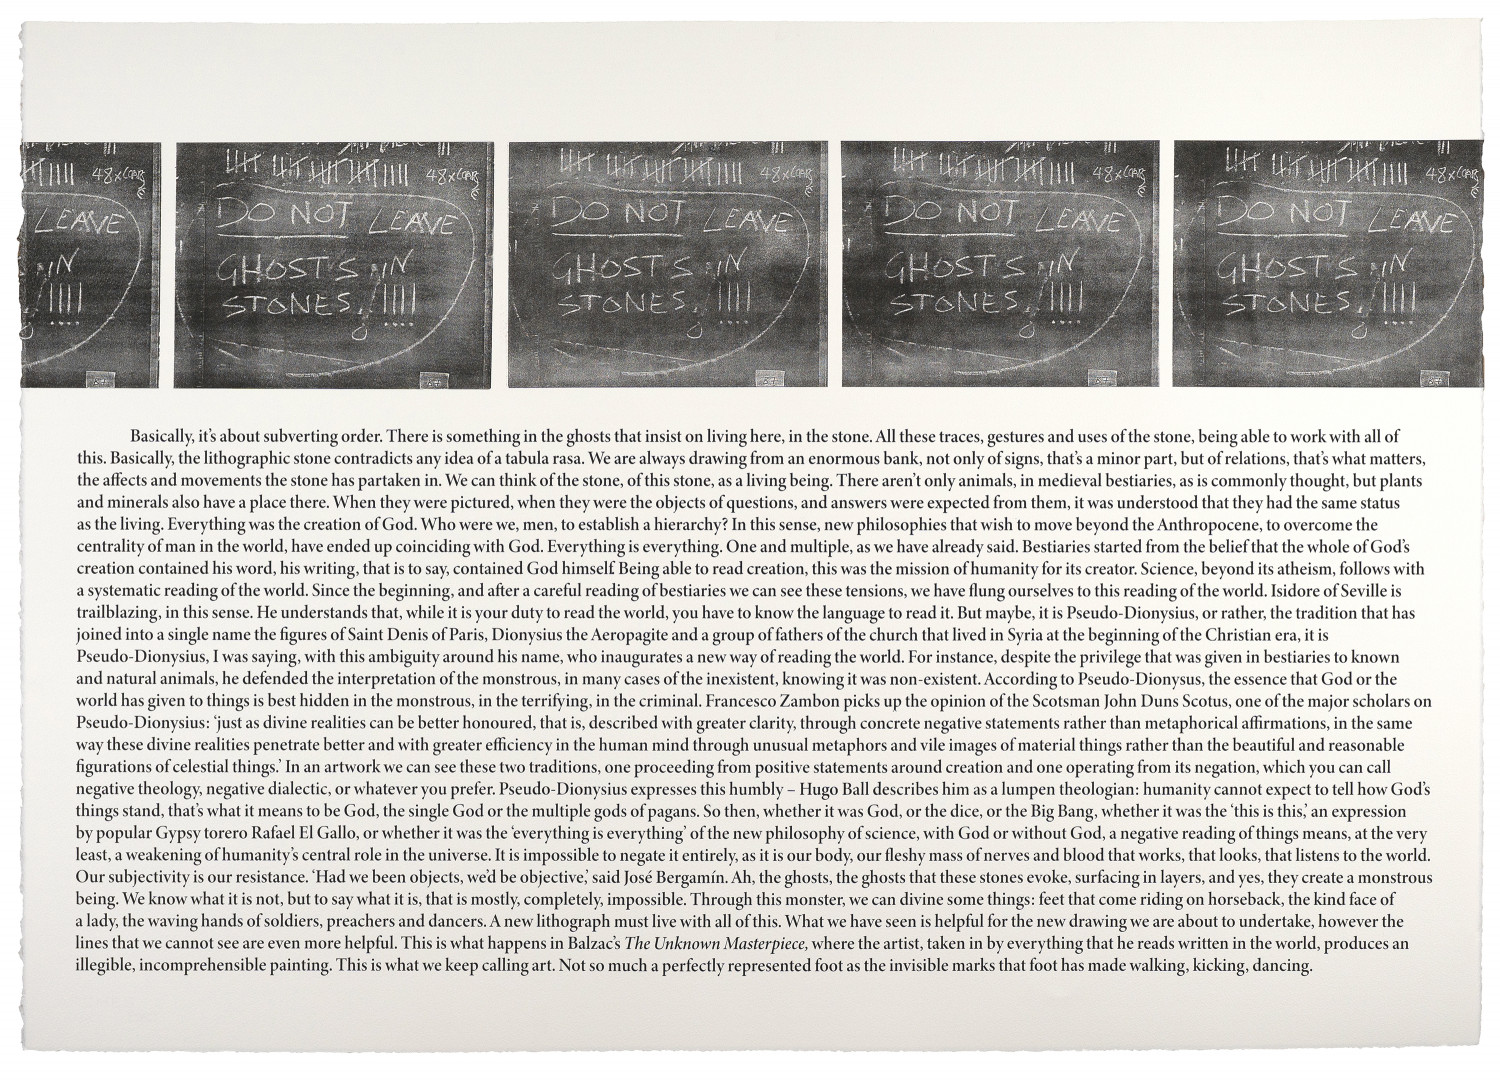 48x
LEAVE
IN
48x
DO NOT LEAVE
GHOST'S IN
STONES,
48x
DO NOT LEAVE
GHOST'S IN
STONES,
48x
DO NOT LEAVE
GHOST'S IN
STONES,
48x
DO NOT LEAVE
GHOST'S IN
STONES,
Basically, it's about subverting order. There is something in the ghosts that insist on living here, in the stone. All these traces, gestures and uses of the stone, being able to work with all of
this. Basically, the lithographic stone contradicts any idea of a tabula rasa. We are always drawing from an enormous bank, not only of signs, that's a minor part, but of relations, that's what matters,
the affects and movements the stone has partaken in. We can think of the stone, of this stone, as a living being. There aren't only animals, in medieval bestiaries, as is commonly thought, but plants
and minerals also have a place there. When they were pictured, when they were the objects of questions, and answers were expected from them, it was understood that they had the same status
as the living. Everything was the creation of God. Who were we, men, to establish a hierarchy? In this sense, new philosophies that wish to move beyond the Anthropocene, to overcome the
centrality of man in the world, have ended up coinciding with God. Everything is everything. One and multiple, as we have already said. Bestiaries started from the belief that the whole of God's
creation contained his word, his writing, that is to say, contained God himself Being able to read creation, this was the mission of humanity for its creator. Science, beyond its atheism, follows with
a systematic reading of the world. Since the beginning, and after a careful reading of bestiaries we can see these tensions, we have flung ourselves to this reading of the world. Isidore of Seville is
trailblazing, in this sense. He understands that, while it is your duty to read the world, you have to know the language to read it. But maybe, it is Pseudo-Dionysius, or rather, the tradition that has
joined into a single name the figures of Saint Denis of Paris, Dionysius the Aeropagite and a group of fathers of the church that lived in Syria at the beginning of the Christian era, it is
Pseudo-Dionysius, I was saying, with this ambiguity around his name, who inaugurates a new way of reading the world. For instance, despite the privilege that was given in bestiaries to known
and natural animals, he defended the interpretation of the monstrous, in many cases of the inexistent, knowing it was non-existent. According to Pseudo-Dionysus, the essence that God or the
world has given to things is best hidden in the monstrous, in the terrifying, in the criminal. Francesco Zambon picks up the opinion of the Scotsman John Duns Scotus, one of the major scholars on
Pseudo-Dionysius: 'just as divine realities can be better honoured, that is, described with greater clarity, through concrete negative statements rather than metaphorical affirmations, in the same
way these divine realities penetrate better and with greater efficiency in the human mind through unusual metaphors and vile images of material things rather than the beautiful and reasonable
figurations of celestial things.' In an artwork we can see these two traditions, one proceeding from positive statements around creation and one operating from its negation, which you can call
negative theology, negative dialectic, or whatever you prefer. Pseudo-Dionysius expresses this humbly – Hugo Ball describes him as a lumpen theologian: humanity cannot expect to tell how God's
things stand, that's what it means to be God, the single God or the multiple gods of pagans. So then, whether it was God, or the dice, or the Big Bang, whether it was the 'this is this,' an expression
by popular Gypsy torero Rafael El Gallo, or whether it was the 'everything is everything' of the new philosophy of science, with God or without God, a negative reading of things means, at the very
least, a weakening of humanity's central role in the universe. It is impossible to negate it entirely, as it is our body, our fleshy mass of nerves and blood that works, that looks, that listens to the world.
Our subjectivity is our resistance. 'Had we been objects, we'd be objective,' said José Bergamín. Ah, the ghosts, the ghosts that these stones evoke, surfacing in layers, and yes, they create a monstrous
being. We know what it is not, but to say what it is, that is mostly, completely, impossible. Through this monster, we can divine some things: feet that come riding on horseback, the kind face of
a lady, the waving hands of soldiers, preachers and dancers. A new lithograph must live with all of this. What we have seen is helpful for the new drawing we are about to undertake, however the
lines that we cannot see are even more helpful. This is what happens in Balzac's The Unknown Masterpiece, where the artist, taken in by everything that he reads written in the world, produces an
illegible, incomprehensible painting. This is what we keep calling art. Not so much a perfectly represented foot as the invisible marks that foot has made walking, kicking, dancing.